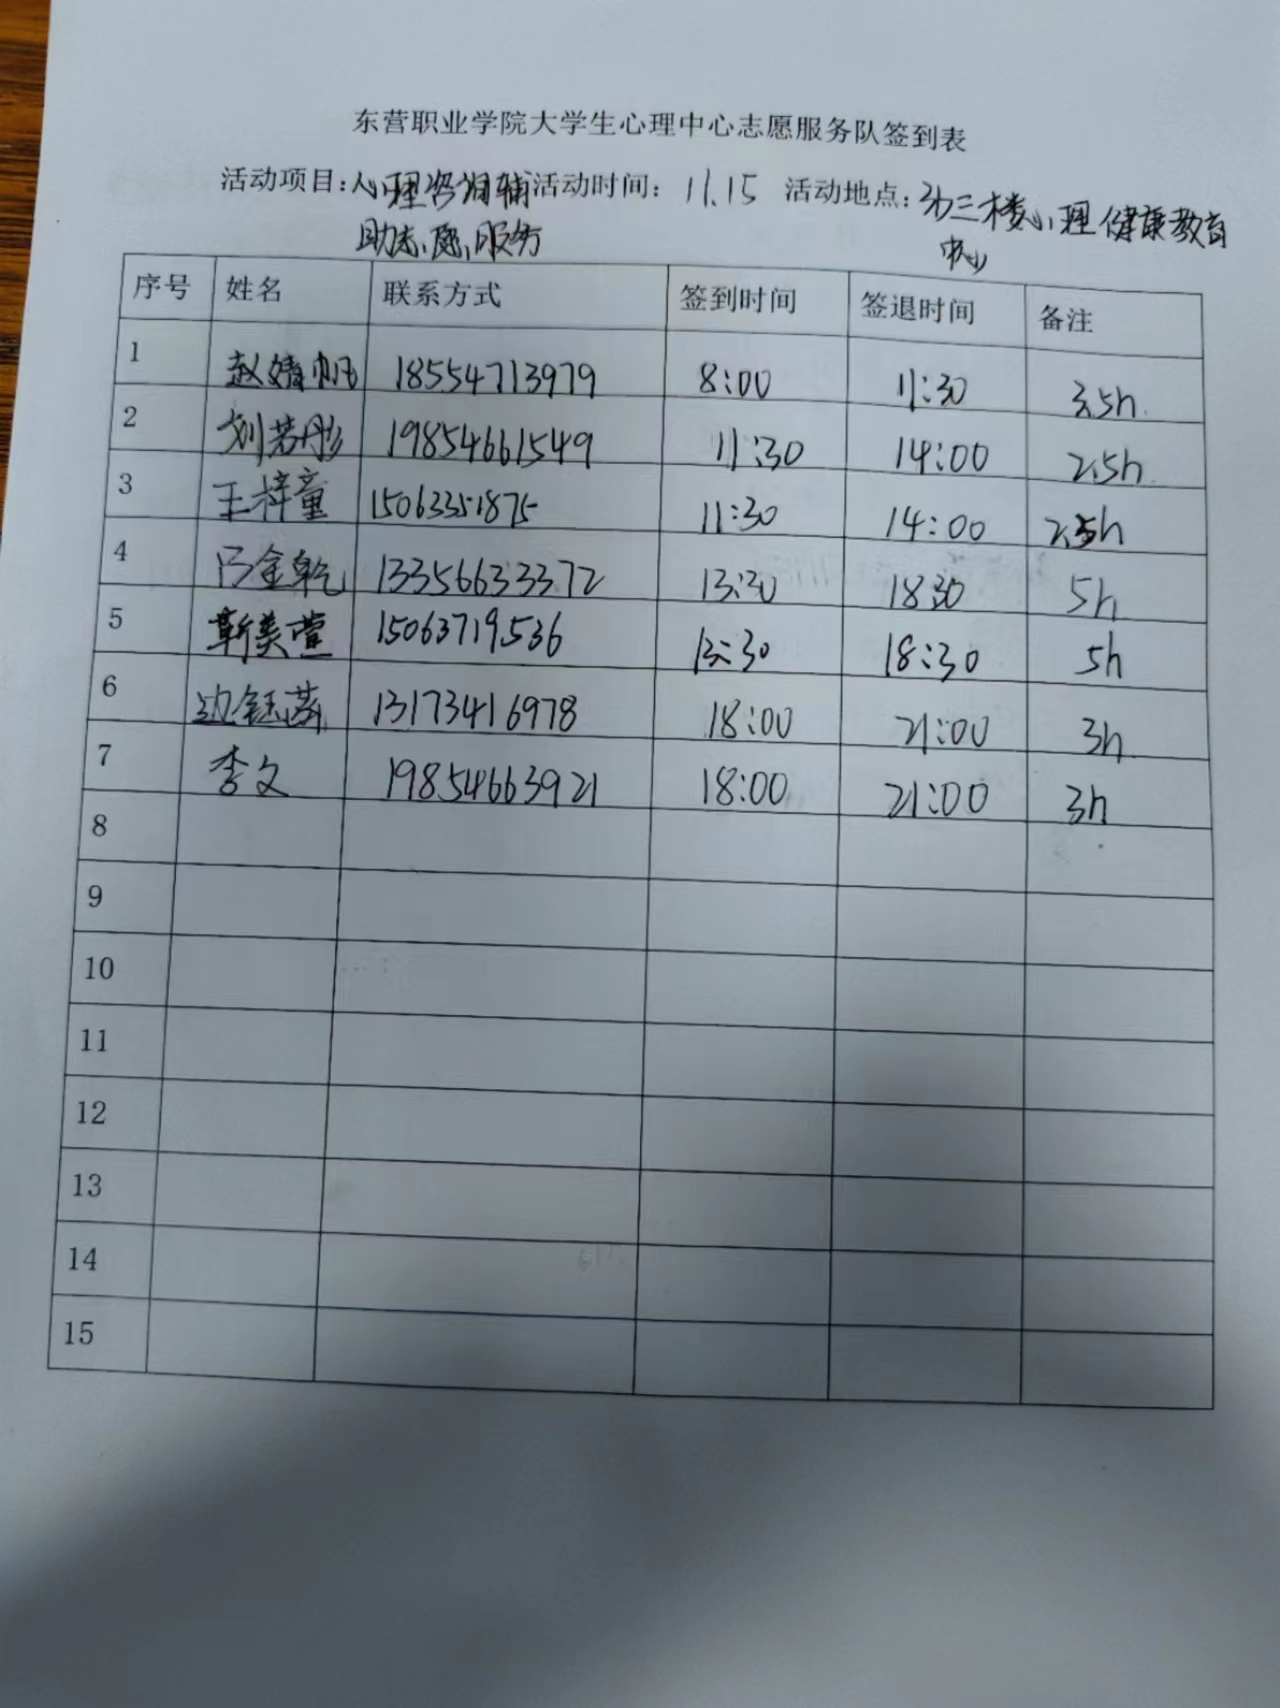 东营职业学院大学生心理中心志愿服务队签到表
活动项目:心理咨询辅 活动时间: 11.15 活动地点: 三楼心理健康教育
助志愿服务 中心
序号 姓名 联系方式 签到时间 签退时间 备注
1 赵婧帆 18554713979 8:00 11:30 3.5h
2 刘若彤 19854661549 11:30 14:00 2.5h
3 王梓童 15063351875 11:30 14:00 2.5h
4 吕金乾 13356633372 13:30 18:30 5h
5 靳美萱 15063719536 13:30 18:30 5h
6 边钰 13173416978 18:00 21:00 3h
7 李文 19854663921 18:00 21:00 3h
8
9
10
11
12
13
14
15